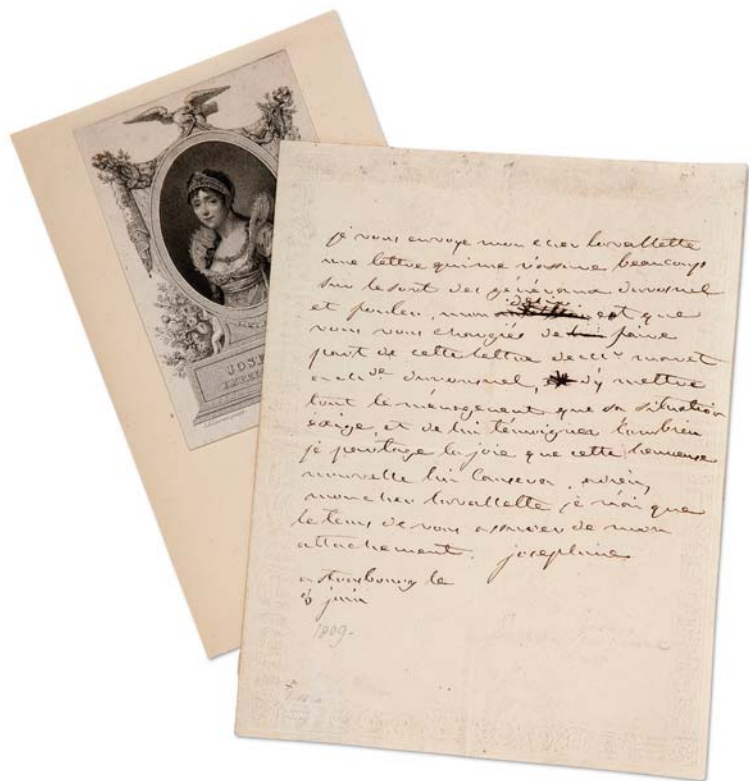 JOSE
IMPER
je vous envoye mon cher lavallette
une lettre qui me rassure beaucoup
sur le sort des généraux durosnel
et fouler, mon désir est que
vous vous chargiés de faire
part de cette lettre de Mr maret
a Mde durosnel, d'y mettre
tout le ménagement que sa situation
exige, et de lui témoigner combien
je partage la joie que cette heureuse
nouvelle lui causera, adieu
mon cher lavallette je n'ai que
le tems de vous assurer de mon
attachement. josephine
a strasbourg le
juin
1809-